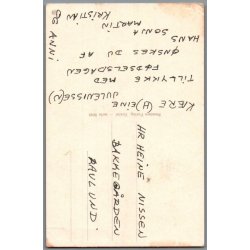 KÆRE (H)EINE
JULENISSE(N)
TILLYKKE MED
FØDSELSDAGEN
ØNSKES DU AF
HANS SONJA
MARTIN
KRISTIAN
OG ANNI
HR HEINE NISSEN
BAKKEGÅRDEN
RAVLUND